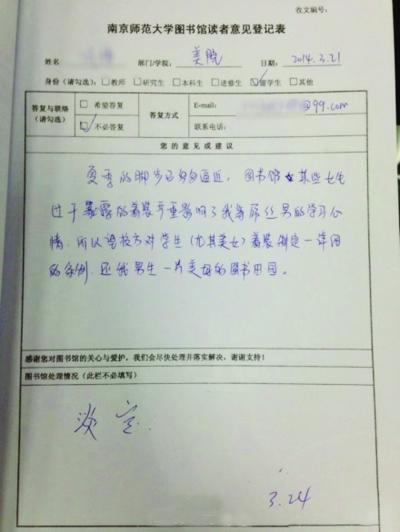 收文编号：
南京师范大学图书馆读者意见登记表
姓名 部门/学院： 美院 日期： 2014.3.21
身份（请勾选）：□教师 □研究生 □本科生 □进修生 ☑留学生 □其他
答复与联络（请勾选） □ 希望答复 答复方式 E-mail： @99.com
☑ 不必答复 联系电话：
您的意见或建议
夏季的脚步已匆匆逼近，图书馆某些女生
过于暴露的着装严重影响了我等屌丝男的学习心
情，所以望校方对学生（尤其美女）着装制定一详细
的条例，还我男生一片美好的图书田园。
感谢您对图书馆的关心与爱护，我们会尽快处理并落实解决，谢谢支持！
图书馆处理情况（此栏不必填写）
淡定.
3.24